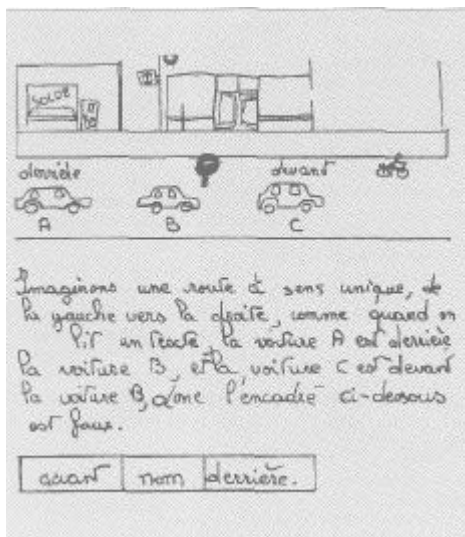 SOLDE
derrière devant
A B C
Imaginons une route à sens unique, de
la gauche vers la droite, comme quand on
lit un texte, la voiture A est derrière
la voiture B, et la voiture C est devant
la voiture B, donc l'encadré ci-dessous
est faux.
avant nom derrière.